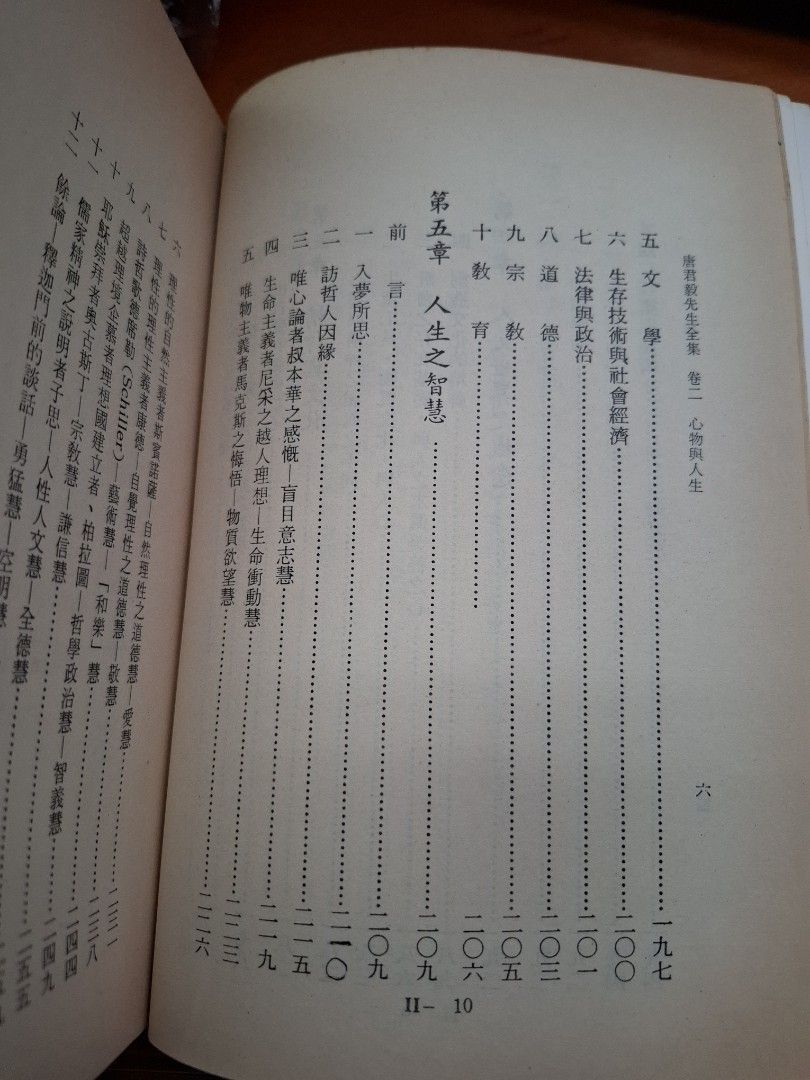 唐君毅先生全集 卷二 心物與人生
六
五 文學……一九七
六 生存技術與社會經濟……二〇〇
七 法律與政治……二〇一
八 道德……二〇三
九 宗教……二〇五
十 教育……二〇六
第五章 人生之智慧……二〇九
前言……二〇九
一 入夢所思……二一〇
二 訪哲人因緣……二一五
三 唯心論者叔本華之感慨—盲目意志慧……二一九
四 生命主義者尼采之越人理想—生命衝動慧……二二三
五 唯物主義者馬克斯之悔悟—物質欲望慧……二二六
II- 10
六 理性的自然主義者斯賓諾薩—自然理性之道德慧—愛慧……二三一
七 理性的理性主義者康德—自覺理性之道德慧—敬慧……二三八
八 詩哲歌德席勒(Schiller)—藝術慧—「和樂」慧……二四四
九 超越理境企慕者理想國建立者、柏拉圖—哲學政治慧—智義慧……二四九
十 耶穌崇拜者奧古斯丁—宗教慧—謙信慧……二五五
十一 儒家精神之說明者子思—人性人文慧—全德慧……
十二 餘論—釋迦門前的談話—勇猛慧—空明慧